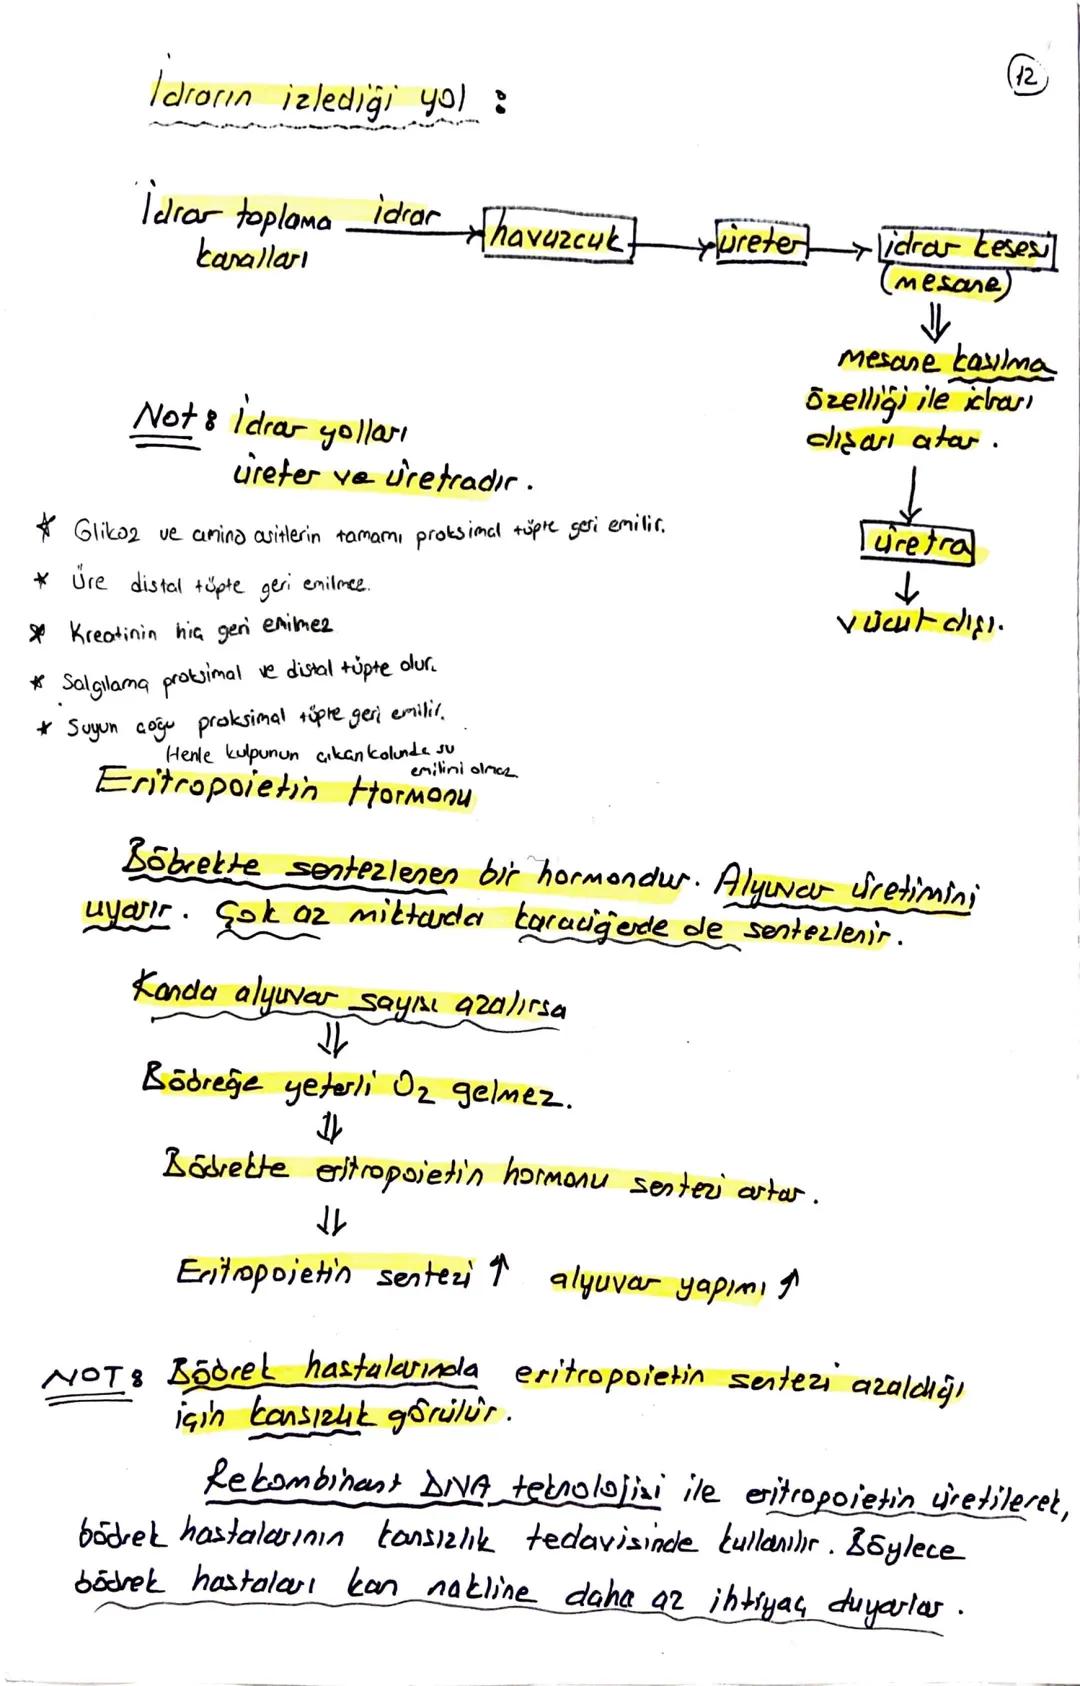 12
İdrarın izlediği yol :
İdrar toplama kanalları idrar → havuzcuk → üreter → idrar kesesi
(mesane)
⇓
Mesane kasılma
özelliği ile idrarı
dışarı atar.
↓
üretra
↓
vücut dışı.
Not: İdrar yolları
üreter ve üretradır.
* Glikoz ve amino asitlerin tamamı proksimal tüpte geri emilir.
* Üre distal tüpte geri emilmez.
* Kreatinin hiç geri emilmez
* Salgılama proksimal ve distal tüpte olur.
* Suyun çoğu proksimal tüpte geri emilir.
Henle kulpunun çıkan kolunda su
emilimi olmaz
Eritropoietin Hormonu
Böbrekte sentezlenen bir hormondur. Alyuvar üretimini
uyarır. Çok az miktarda karaciğerde de sentezlenir.
Kanda alyuvar sayısı azalırsa
⇓
Böbreğe yeterli O2 gelmez.
⇓
Böbrekte eritropoietin hormonu sentezi artar.
⇓
Eritropoietin sentezi ↑ alyuvar yapımı ↑
NOT: Böbrek hastalarında eritropoietin sentezi azaldığı
için kansızlık görülür.
Rekombinant DNA teknolojisi ile eritropoietin üretilerek,
böbrek hastalarının kansızlık tedavisinde kullanılır. Böylece
böbrek hastaları kan nakline daha az ihtiyaç duyarlar.